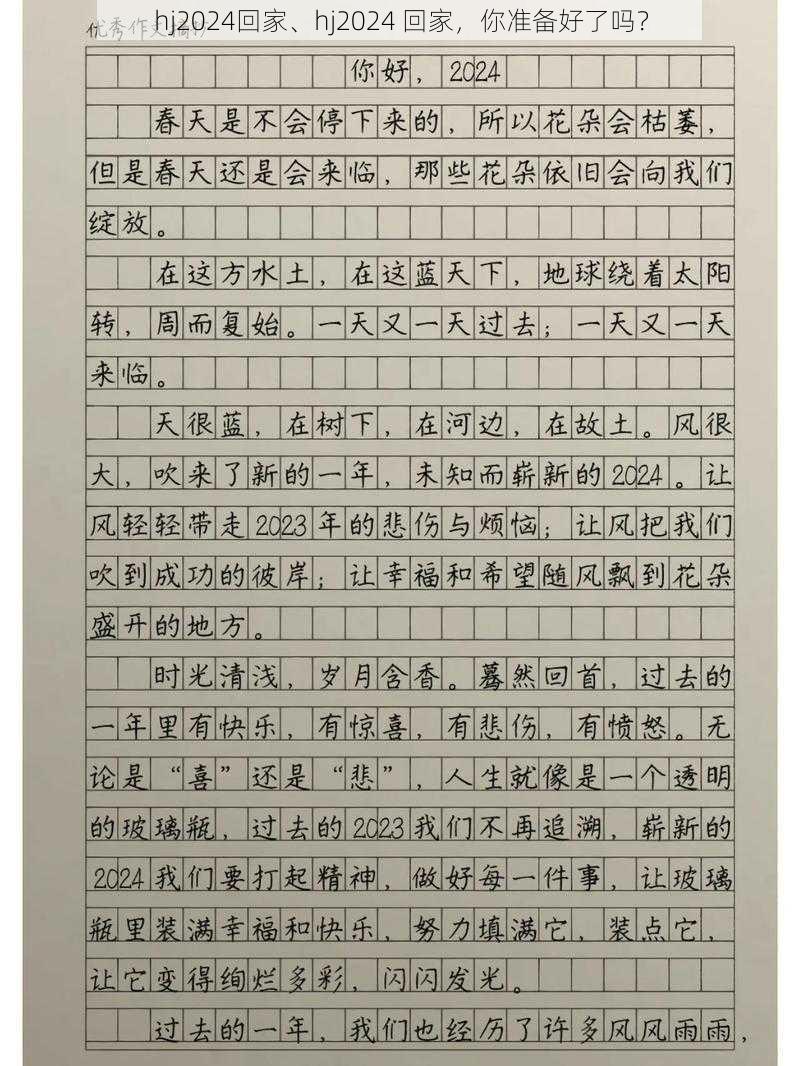 hj2024回家、hj2024 回家，你准备好了吗？
优秀作文摘抄
你好，2024
春天是不会停下来的，所以花朵会枯萎，
但是春天还是会来临，那些花朵依旧会向我们
绽放。
在这方水土，在这蓝天下，地球绕着太阳
转，周而复始。一天又一天过去；一天又一天
来临。
天很蓝，在树下，在河边，在故土。风很
大，吹来了新的一年，未知而崭新的2024。让
风轻轻带走2023年的悲伤与烦恼；让风把我们
吹到成功的彼岸；让幸福和希望随风飘到花朵
盛开的地方。
时光清浅，岁月含香。蓦然回首，过去的
一年里有快乐，有惊喜，有悲伤，有愤怒。无
论是“喜”还是“悲”，人生就像是一个透明
的玻璃瓶，过去的2023我们不再追溯，崭新的
2024我们要打起精神，做好每一件事，让玻璃
瓶里装满幸福和快乐，努力填满它，装点它，
让它变得绚烂多彩，闪闪发光。
过去的一年，我们也经历了许多风风雨雨，